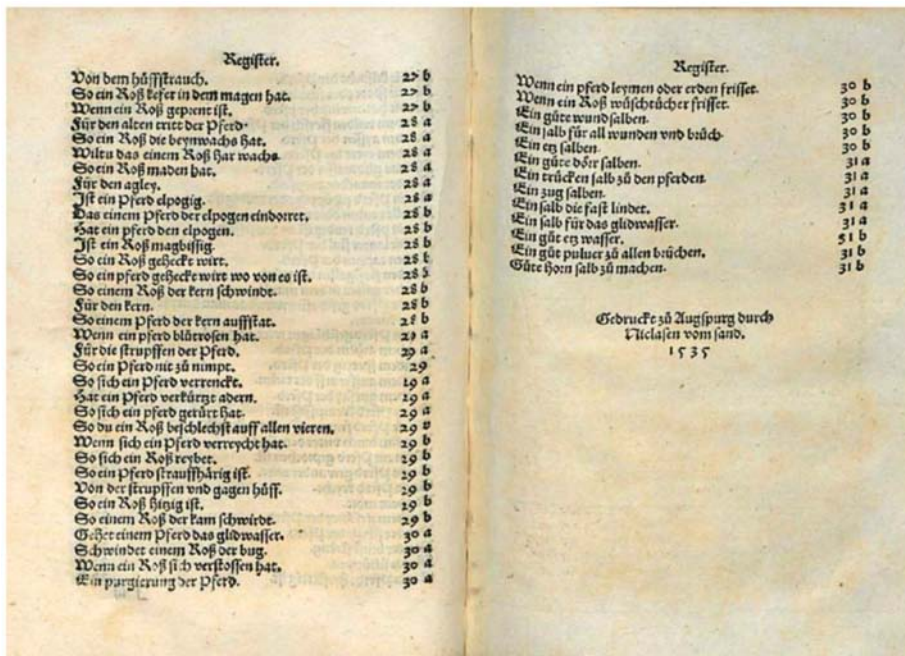 Register.
Von dem hůffstrauch. 27 b
So ein Roß kefer in dem magen hat. 27 b
Wenn ein Roß geprent ist. 27 b
Für den alten tritt der Pferd. 28 a
So ein Roß die beynwachs hat. 28 a
Wiltu das einem Roß har wachs. 28 a
So ein Roß maden hat. 28 a
Für den agley. 28 a
Ist ein Pferd elpogig. 28 a
Das einem Pferd der elpogen eindorret. 28 b
Hat ein pferd den elpogen. 28 b
Ist ein Roß magbissig. 28 b
So ein Roß geheckt wirt. 28 b
So ein pferd geheckt wirt wo von es ist. 28 b
So einem Roß der kern schwindt. 28 b
Für den kern. 28 b
So einem Pferd der kern auffstat. 28 b
Wenn ein pferd blůtrosen hat. 29 a
Für die strupffen der Pferd. 29 a
So ein Pferd nit zů nimpt. 29
So sich ein Pferd verrenckt. 19 a
Hat ein Pferd verkürtzt adern. 19 a
So sich ein pferd gerürt hat. 29 a
So du ein Roß beschlechst auff allen vieren. 29
Wenn sich ein Pferd verreycht hat. 29 b
So sich ein Roß reybet. 29 b
So ein Pferd strauffhärig ist. 29 b
Von der strupffen vnd gagen hůff. 29 b
So ein Roß hitzig ist. 29 b
So einem Roß der kam schwirdt. 29 b
Gehet einem Pferd das glidwasser. 30 a
Schwindet einem Roß der bug. 30 a
Wenn ein Roß sich verstossen hat. 30 a
Ein purgierung der Pferd. 30 a
Register.
Wenn ein pferd leymen oder erden frisset. 30 b
Wenn ein Roß wüschtücher frisset. 30 b
Ein gůte wundsalben. 30 b
Ein salb für all wunden vnd brüch. 30 b
Ein etz salben. 30 b
Ein gůte dörr salben. 31 a
Ein trücken salb zů den pferden. 31 a
Ein zug salben. 31 a
Ein salb die fast lindet. 31 a
Ein salb für das glidwasser. 31 a
Ein gůt etz wasser. 51 b
Ein gůt puluer zů allen brüchen. 31 b
Gůte Horn salb zů machen. 31 b
Gedruckt zů Augspurg durch
Niclasen vom sand.
1535